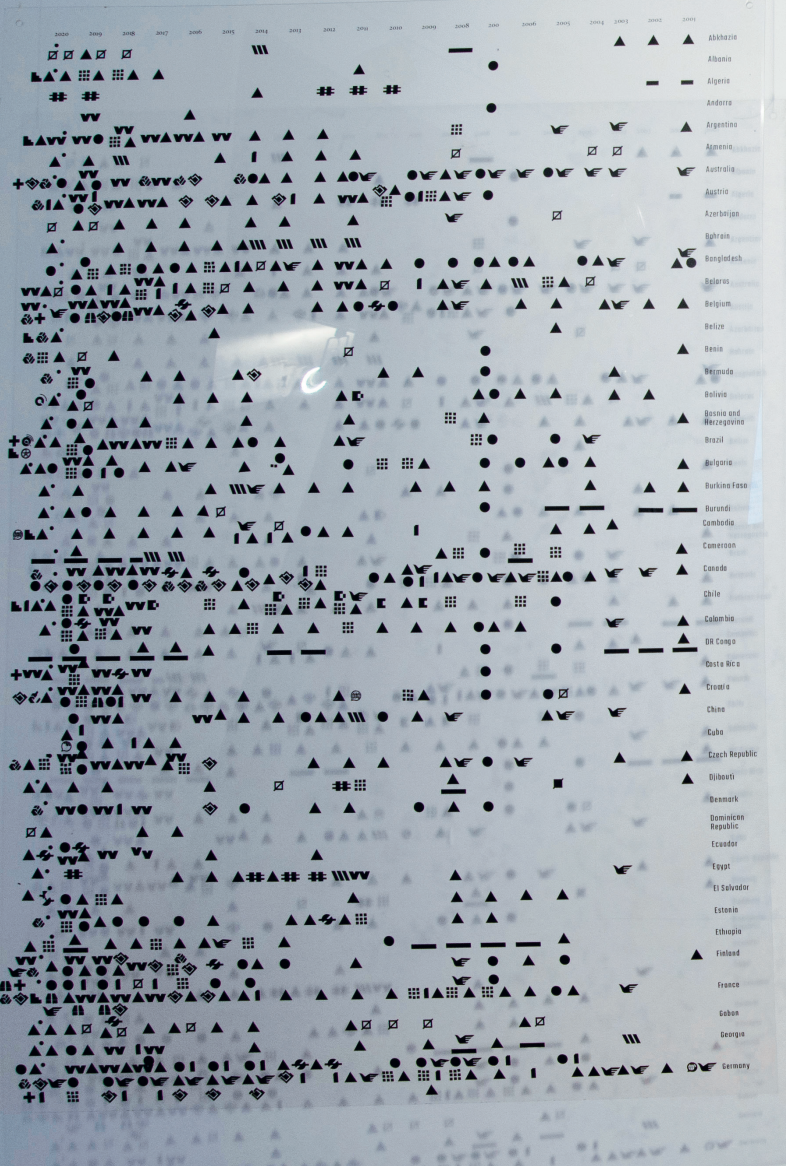 2020 2019 2018 2017 2016 2015 2014 2013 2012 2011 2010 2009 2008 200 2006 2005 2004 2003 2002 2001
Abkhazia
Albania
Algeria
Andorra
Argentina
Armenia
Australia
Austria
Azerbaijan
Bahrain
Bangladesh
Belarus
Belgium
Belize
Benin
Bermuda
Bolivia
Bosnia and
Herzegovina
Brazil
Bulgaria
Burkina Faso
Burundi
Cambodia
Cameroon
Canada
Chile
Colombia
DR Congo
Costa Rica
Croatia
China
Cuba
Czech Republic
Djibouti
Denmark
Dominican
Republic
Ecuador
Egypt
El Salvador
Estonia
Ethiopia
Finland
France
Gabon
Georgia
Germany